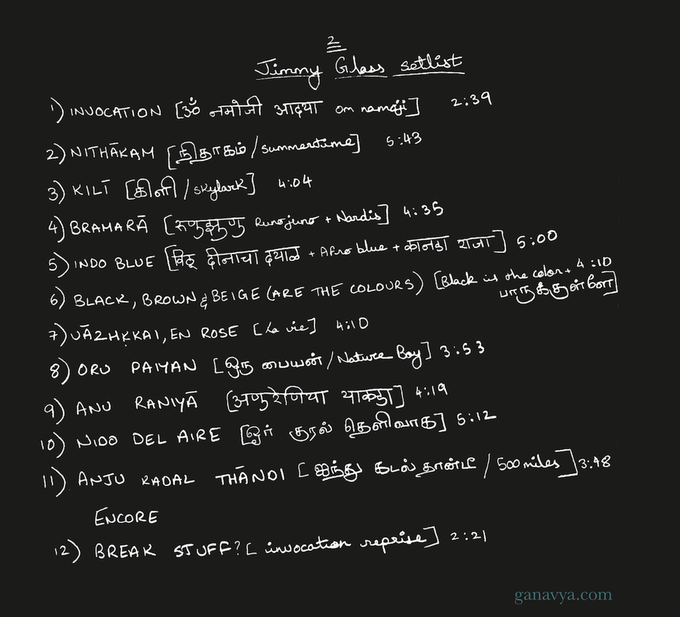 2
Jimmy Glass setlist
1) INVOCATION [ॐ नमोजी आद्या om namoji] 2:39
2) NITHĀKAM [நிதாகம் / summertime] 5:43
3) KILĪ [கிளி / skylark] 4:04
4) BRAMARĀ [रुणुझुणु Runojuno + Nardis] 4:35
5) INDO BLUE [विठू दीनाचा दयाळ + Afro blue + कानडा राजा] 5:00
6) BLACK, BROWN & BEIGE (ARE THE COLOURS) [Black is the color + 4:10
பாருக்குள்ளே]
7) VĀZHKKAI, EN ROSE [La vie] 4:10
8) ORU PAIYAN [ஒரு பையன் / Nature Boy] 3:53
9) ANU RANIYĀ [अणुरेणिया थोकडा] 4:19
10) NIDO DEL AIRE [ஓர் குரல் தெளிவாக] 5:12
11) ANJU KADAL THĀNDI [ஐந்து கடல் தாண்டி / 500 miles] 3:48
ENCORE
12) BREAK STUFF? [invocation reprise] 2:21
ganavya.com